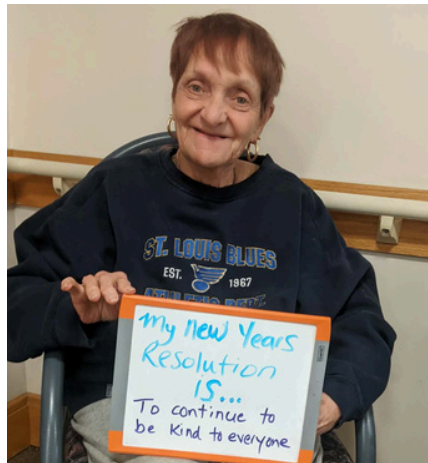 ST. LOUIS BLUES
EST. 1967
ATHLETIC DEPT.
My New Years
Resolution
is...
To continue to
be Kind to everyone